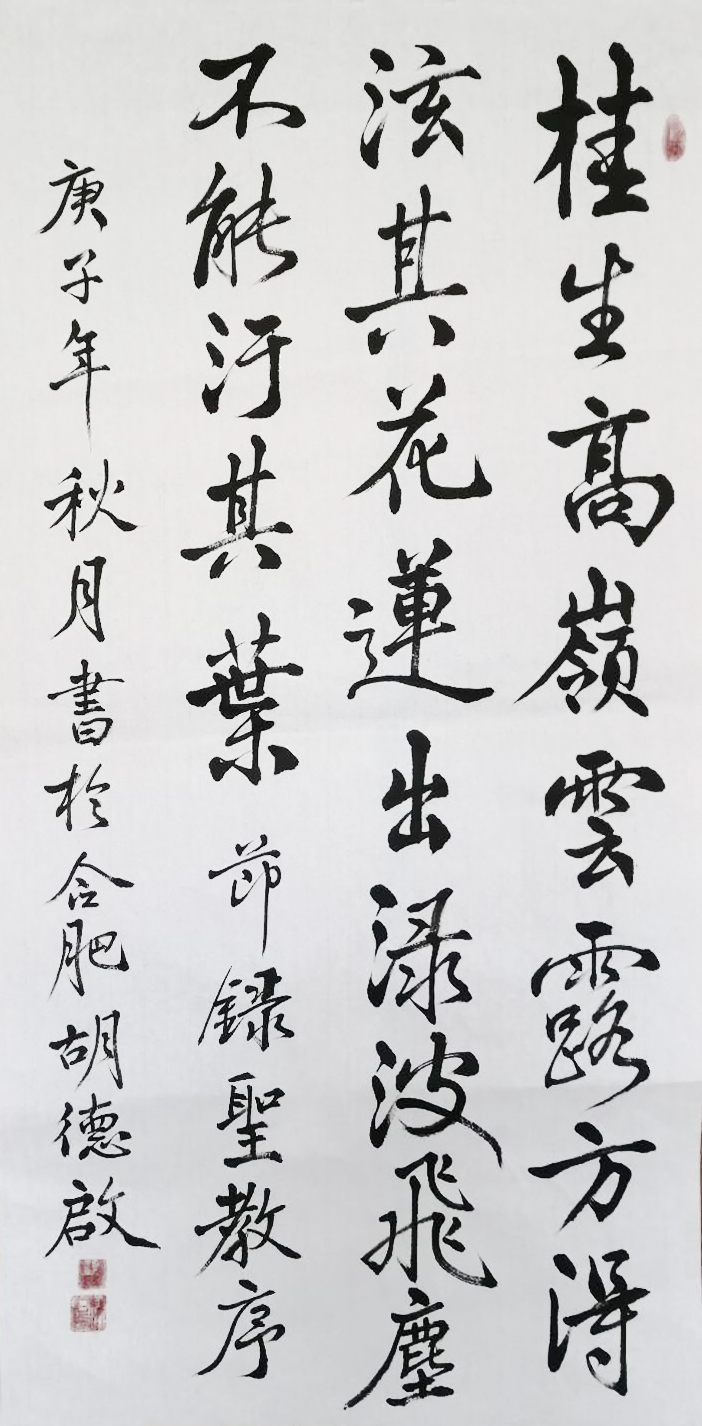 桂生高嶺雲露方得
泫其花蓮出渌波飛塵
不能汙其葉 節録聖教序
庚子年秋月書於合肥胡德啟